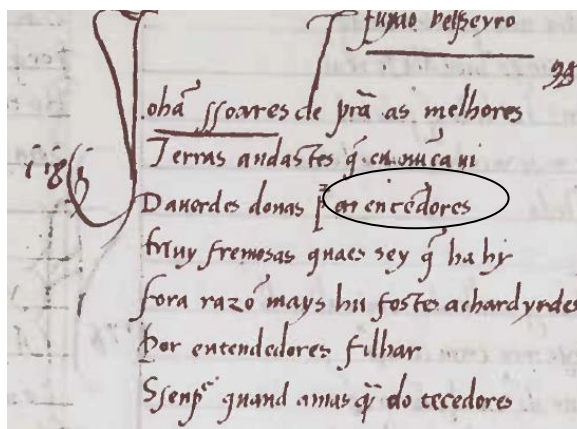 ohã ssoares de prã as melhores
Terras andastes q̃ eu nũca ui
Dauerdes donas ꝑ en tẽdores
Muy fremosas quaes sey q̃ ha hy
fora razõ mays hu fostes achar dyrdes
Por entendedores filhar
Ssenpͤ quand amas q̃ do tecedores